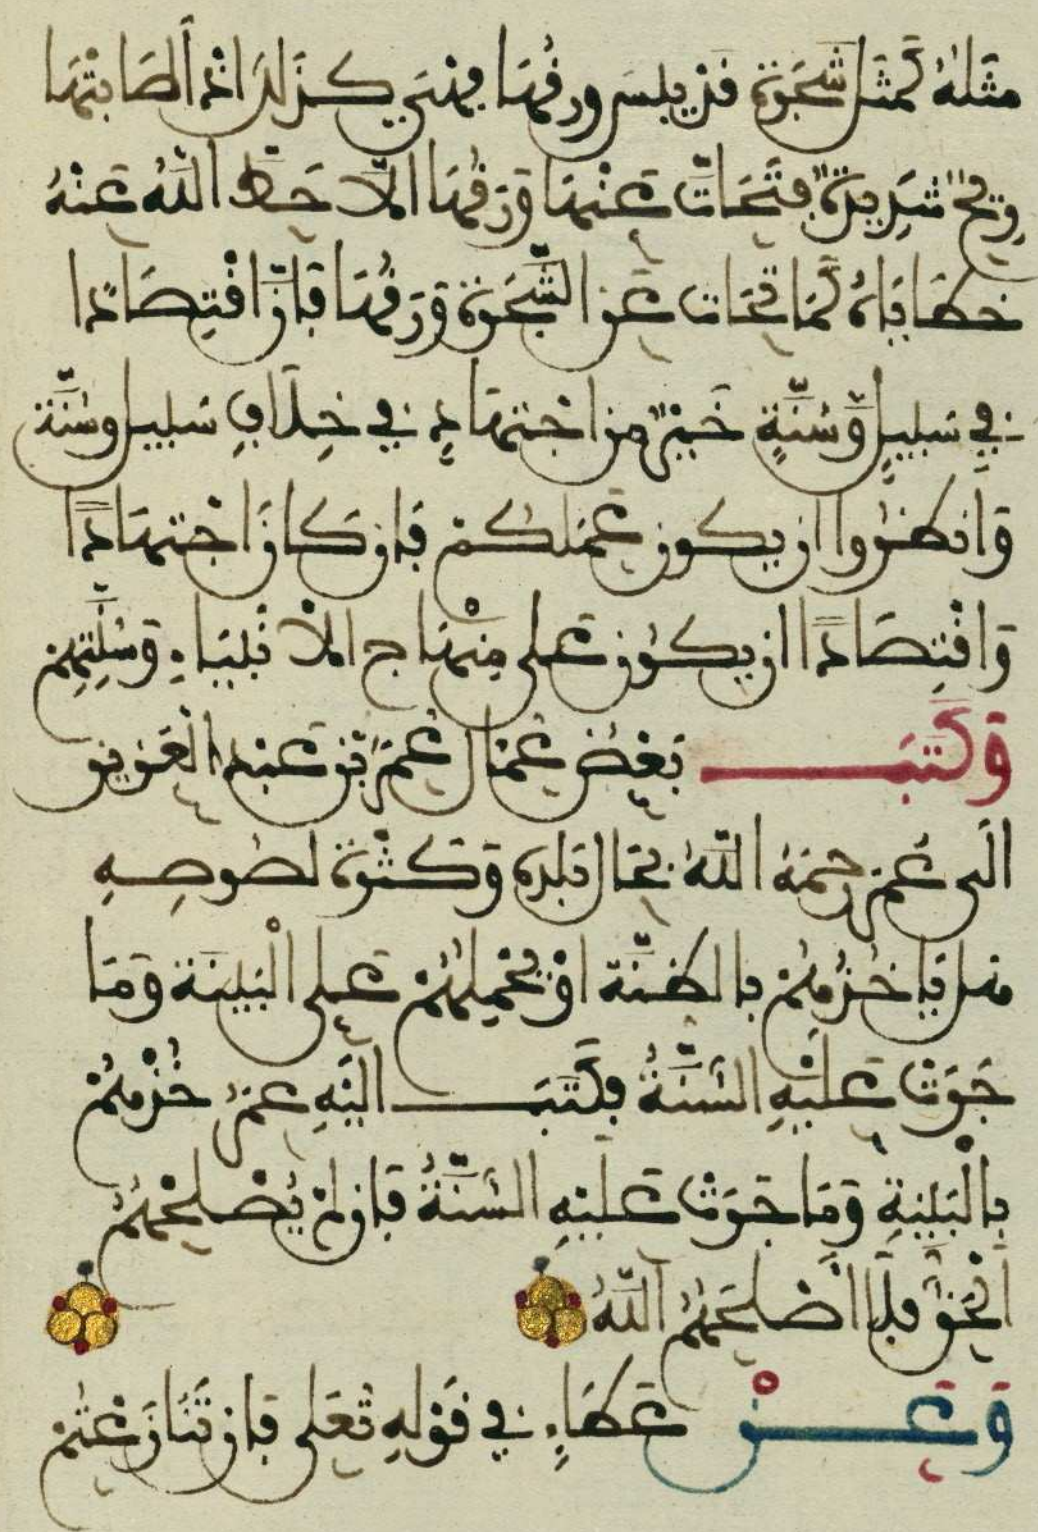 مَثَلُهُ كَمَثَلِ شَجَرَةٍ قَدْ يَبِسَ وَرَقُهَا فَهِيَ كَذَلِكَ اذْ أَصَابَتْهَا
رِيحٌ شَدِيدَةٌ فَتَحَاتَّ عَنْهَا وَرَقُهَا الَّا حَطَّ اللَّهُ عَنْهُ
خَطَايَاهُ كَمَا تَحَاتَّ عَنِ الشَّجَرَةِ وَرَقُهَا فَإِنَّ اقْتِصَادًا
فِي سَبِيلٍ وَّسُنَّةٍ خَيْرٌ مِنِ اجْتِهَادٍ فِي خِلَافِ سَبِيلٍ وَسُنَّةٍ
وَانْظُرُوا ان يَكُونَ عَمَلُكُمْ فَإِن كَانَ اجْتِهَادًا
وَاقْتِصَادًا ان يَكُونَ عَلَى مِنْهَاجِ الْأَنْبِيَاءِ وَسُنَّتِهِمْ
وَكَتَبَ بَعْضُ عُمَّالِ عُمَرَ بْنِ عَبْدِ الْعَزِيزِ
الَى عُمَرَ رَحِمَهُ اللَّهُ بِحَالِ بَلَدِهِ وَكَثْرَةِ لُصُوصِهِ
هَلْ يَأْخُذُهُمْ بِالظِّنَّةِ اوْ يَحْمِلُهُمْ عَلَى الْبَيِّنَةِ وَمَا
جَرَتْ عَلَيْهِ السُّنَّةُ فَكَتَبَ الَيْهِ عُمَرُ خُذْهُمْ
بِالْبَيِّنَةِ وَمَا جَرَتْ عَلَيْهِ السُّنَّةُ فَإِن لَمْ يُصْلِحْهُمُ
الْحَقُّ فَلَا أَصْلَحَهُمُ اللَّهُ
وَعَنْ عَطَاءٍ فِي قَوْلِهِ تَعَلَى فَإِن تَنَازَعْتُمْ